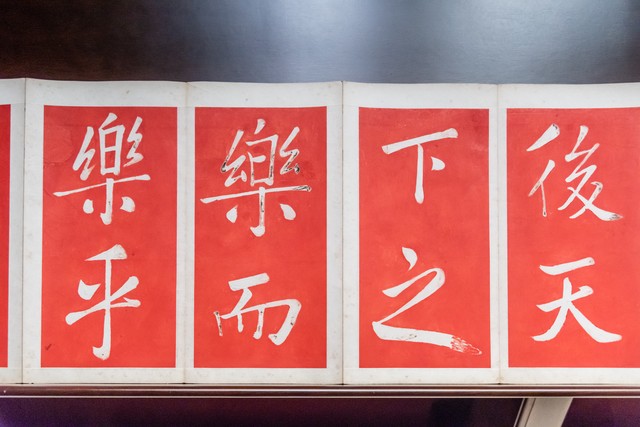 後天
下之
樂而
樂乎